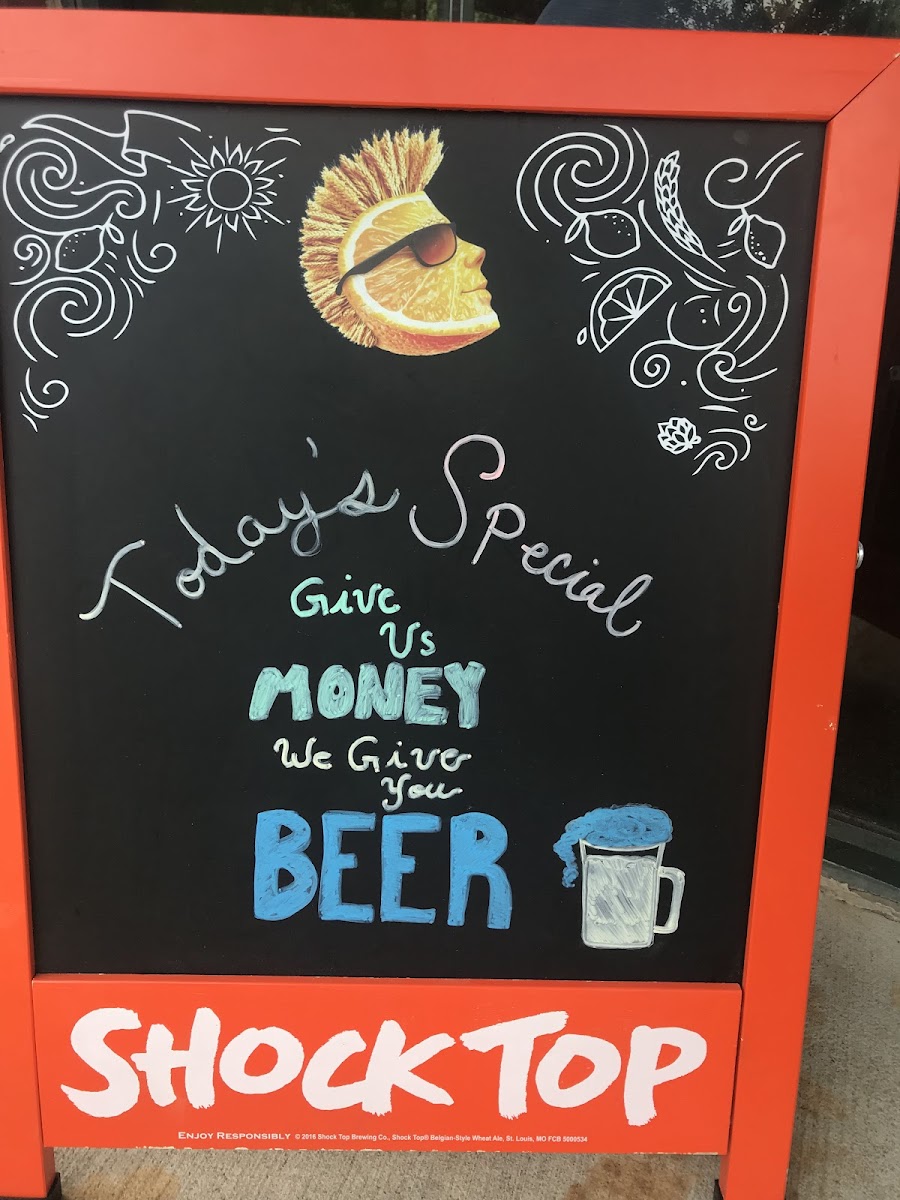 Today's Special
Give
Us
MONEY
We Give
You
BEER
SHOCK TOP
ENJOY RESPONSIBLY © 2016 Shock Top Brewing Co., Shock Top® Belgian-Style Wheat Ale, St. Louis, MO FCB 5000534